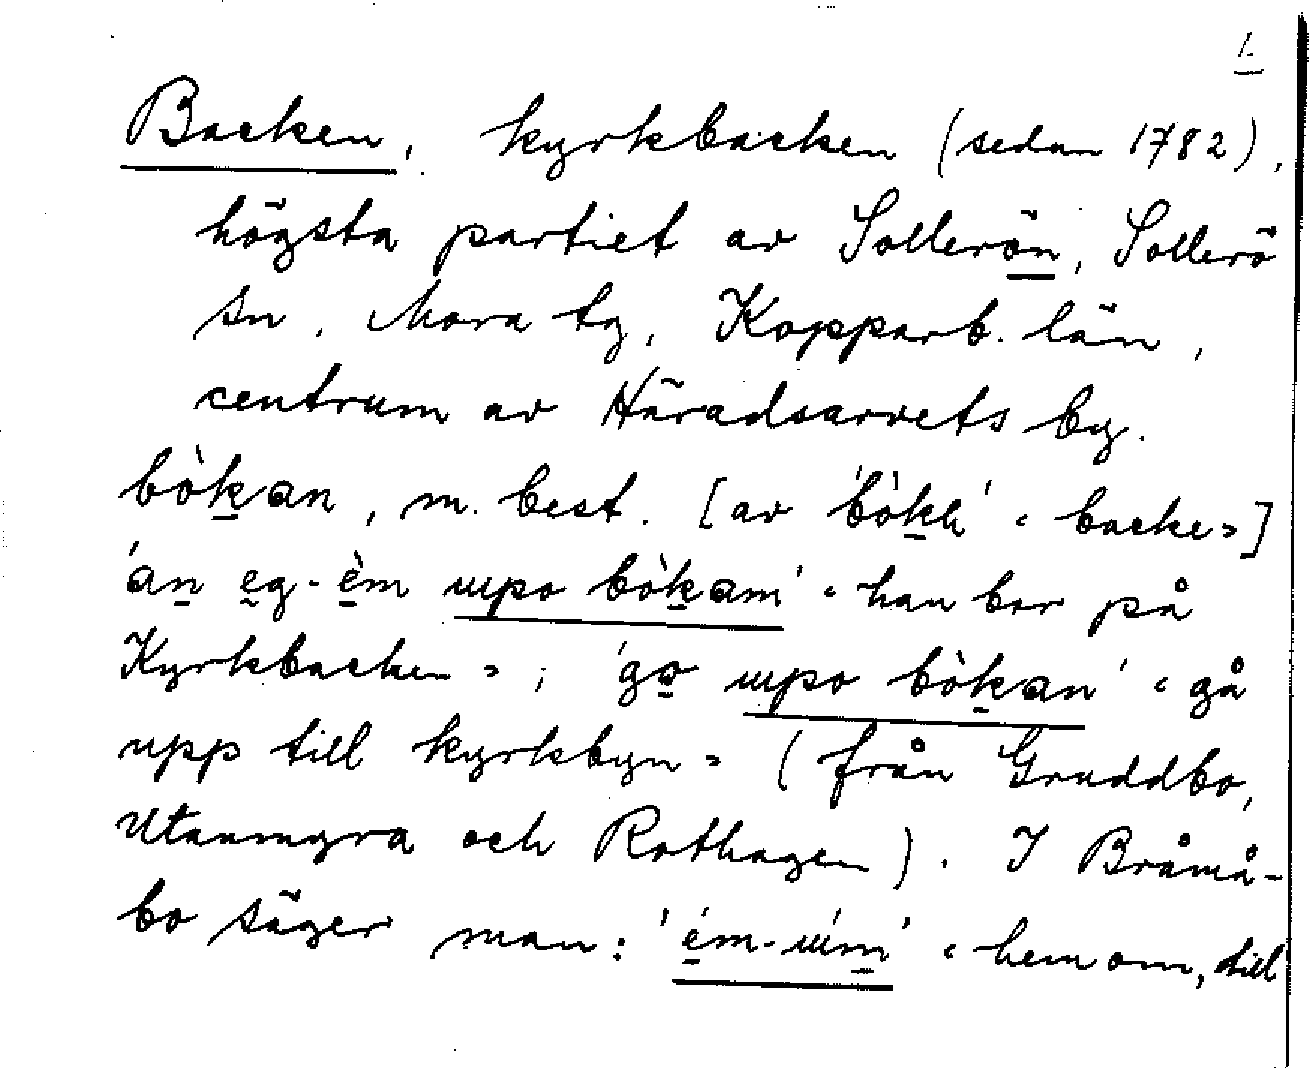 1.
Backen, kyrkbacken (sedan 1782),
högsta partiet av Sollerön, Sollerö
sn, Mora tg, Kopparb. län,
centrum av Häradsarvets by.
bòkan, m. best. [av 'bòkh' «backe»]
'an eg-èm upo bòkam' «han bor på
Kyrkbacken»; 'go upo bòkan' «gå
upp till kyrkbyn» (från Gruddbo,
Utanmyra och Rothagen). I Bråmå-
bo säger man: 'ém-úm' «hem om, till